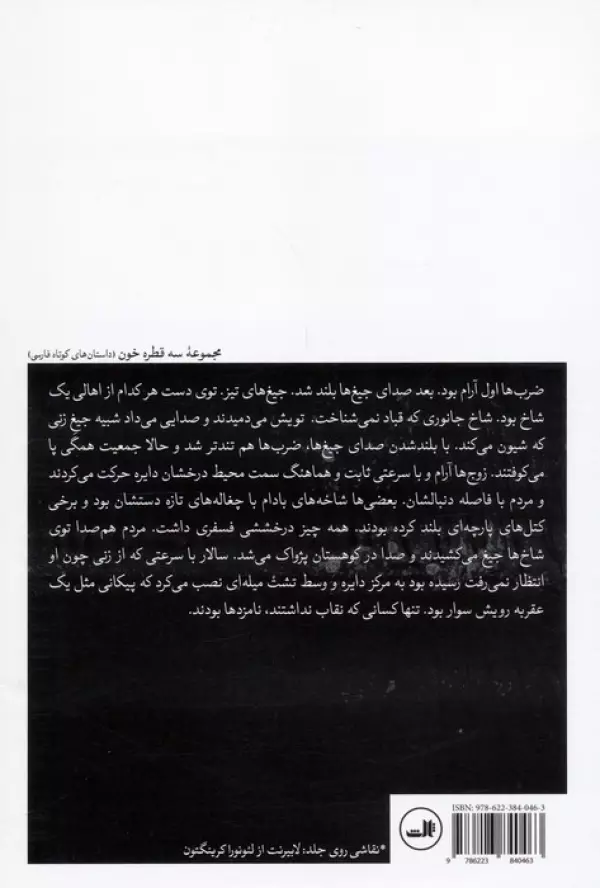 مجموعهٔ سه قطره خون (داستان‌های کوتاه فارسی)
ضرب‌ها اول آرام بود. بعد صدای جیغ‌ها بلند شد. جیغ‌های تیز. توی دست هر کدام از اهالی یک
شاخ بود. شاخ جانوری که قباد نمی‌شناخت. تویش می‌دمیدند و صدایی می‌داد شبیه جیغ زنی
که شیون می‌کند. با بلندشدن صدای جیغ‌ها، ضرب‌ها هم تندتر شد و حالا جمعیت همگی پا
می‌کوفتند. زوج‌ها آرام و با سرعتی ثابت و هماهنگ سمت محیط درخشان دایره حرکت می‌کردند
و مردم با فاصله دنبالشان. بعضی‌ها شاخه‌های بادام با چغاله‌های تازه دستشان بود و برخی
کتل‌های پارچه‌ای بلند کرده بودند. همه چیز درخششی فسفری داشت. مردم هم‌صدا توی
شاخ‌ها جیغ می‌کشیدند و صدا در کوهستان پژواک می‌شد. سالار با سرعتی که از زنی چون او
انتظار نمی‌رفت رسیده بود به مرکز دایره و وسط تشتْ میله‌ای نصب می‌کرد که پیکانی مثل یک
عقربه رویش سوار بود. تنها کسانی که نقاب نداشتند، نامزدها بودند.
ISBN: 978-622-384-046-3
ثالث
*نقاشی روی جلد: لابیرنت از لئونورا کرینگتون
9 786223 840463